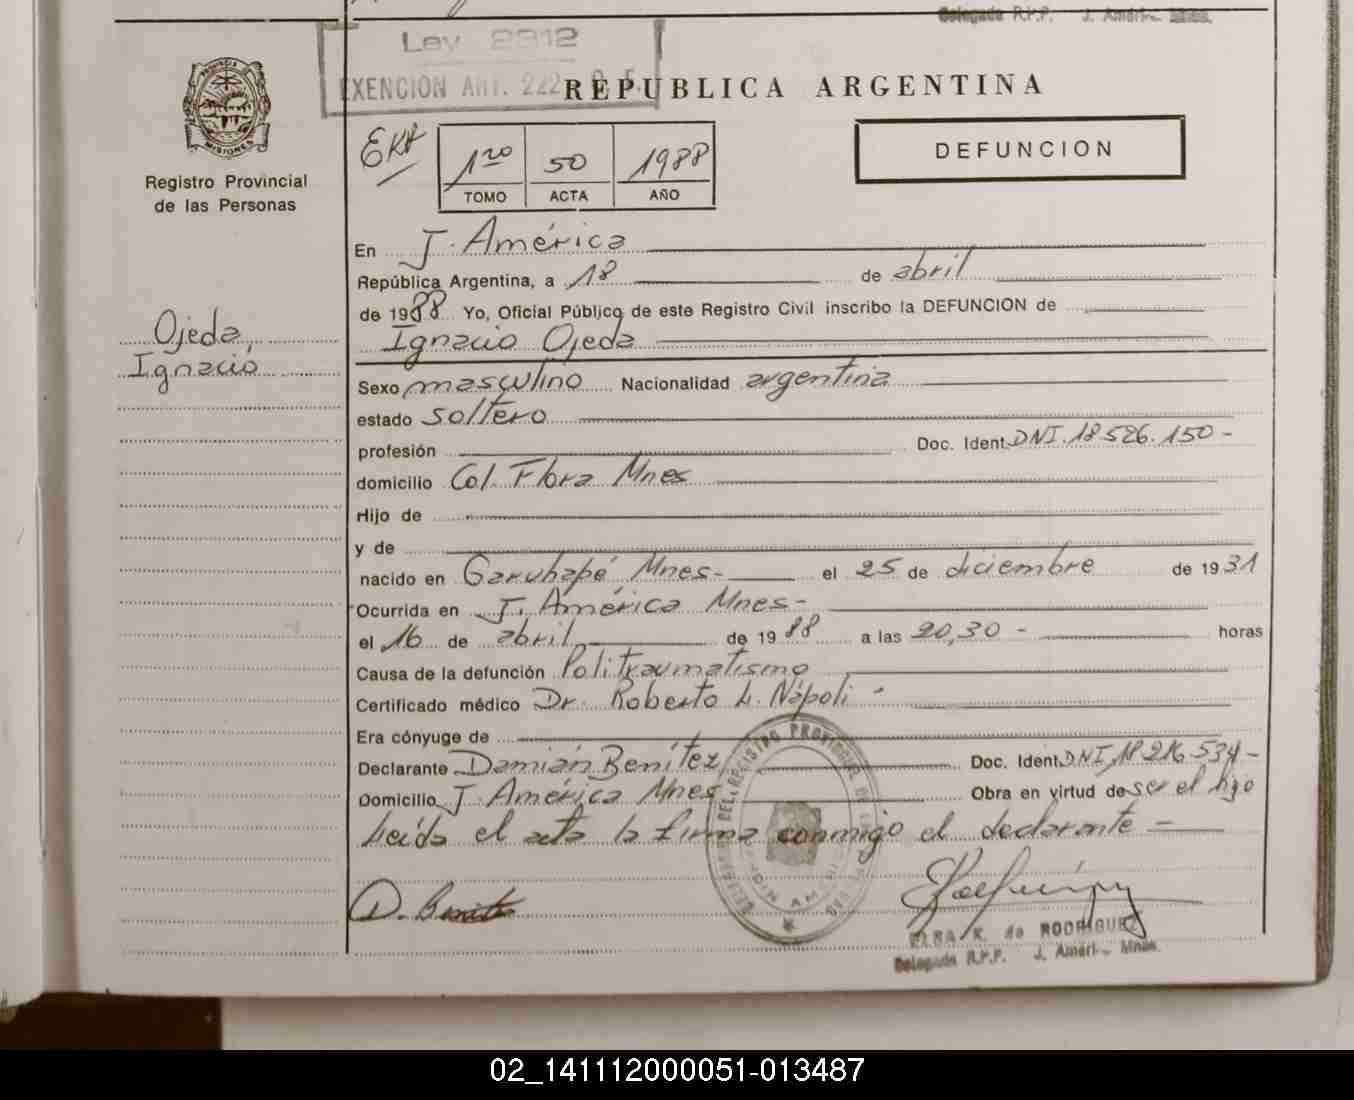 Delegada R.P.P. J. Améri
Ley 2912
EXENCION ART. 222
REPUBLICA ARGENTINA
PROVINCIA DE
MISIONES
Registro Provincial
de las Personas
1ro 50 1988
TOMO ACTA AÑO
DEFUNCION
En J. América
República Argentina, a 18 de abril
de 1988 Yo, Oficial Público de este Registro Civil inscribo la DEFUNCION de
Ignacio Ojeda
Ojeda,
Ignacio
Sexo masculino Nacionalidad argentina
estado soltero
profesión Doc. Ident. DNI. 18 526.150 -
domicilio Col. Flora Mnes
Hijo de
y de
nacido en Garuhapé Mnes- el 25 de diciembre de 1931
Ocurrida en J. América Mnes-
el 16 de abril de 1988 a las 20,30 - horas
Causa de la defunción Politraumatismo
Certificado médico Dr. Roberto L. Nápoli -
Era cónyuge de
Declarante Damián Benítez Doc. Ident. DNI, 18 216.534 -
Domicilio J. América Mnes Obra en virtud de ser el hijo
Leída el acta la firma conmigo el declarante -
D. Benitez
DEL REGISTRO PROVINCIAL DE
ELSA K. de RODRIGUEZ
Delegada R.P.P. J. Améri Mnes.
02_141112000051-013487